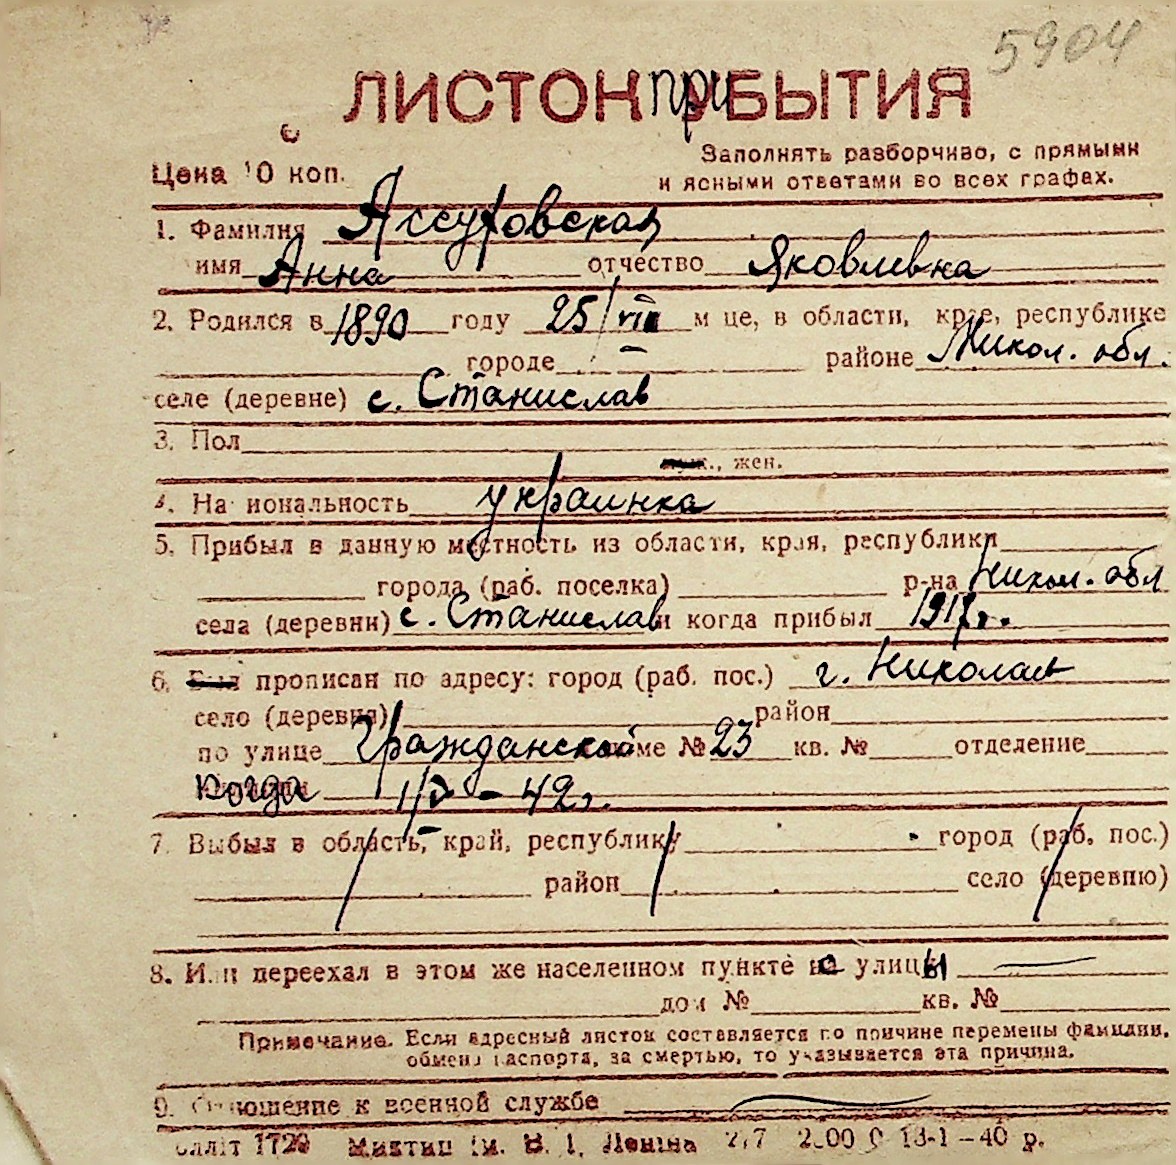 5904
ЛИСТОК ПРИБЫТИЯ
Цена 10 коп.
Заполнять разборчиво, с прямыми
и ясными ответами во всех графах.
1. Фамилия Ассутовская
имя Анна отчество Яковлевна
2. Родился в 1890 году 25/VIII м це, в области, крае, республике
городе — районе Никол. обл.
селе (деревне) с. Станислав
3. Пол
муж., жен.
4. На иональность украинка
5. Прибыл в данную местность из области, края, республики
города (раб. поселка) р-на Никол. обл
села (деревни) с. Станислав и когда прибыл 1917г.
6. Был прописан по адресу: город (раб. пос.) г. Николаев
село (деревня) район
по улице Гражданской доме № 23 кв. № отделение
Когда 1/V - 42г.
7. Выбыл в область, край, республику город (раб. пос.)
район село (деревню)
8. Или переехал в этом же населенном пункте с улицы —
дом № кв. №
Примечание. Если адресный листок составляется по причине перемены фамилии,
обмена паспорта, за смертью, то указывается эта причина.
9. Отношение к военной службе
1729 им. В. І. Леніна 277 13-1-40 р.